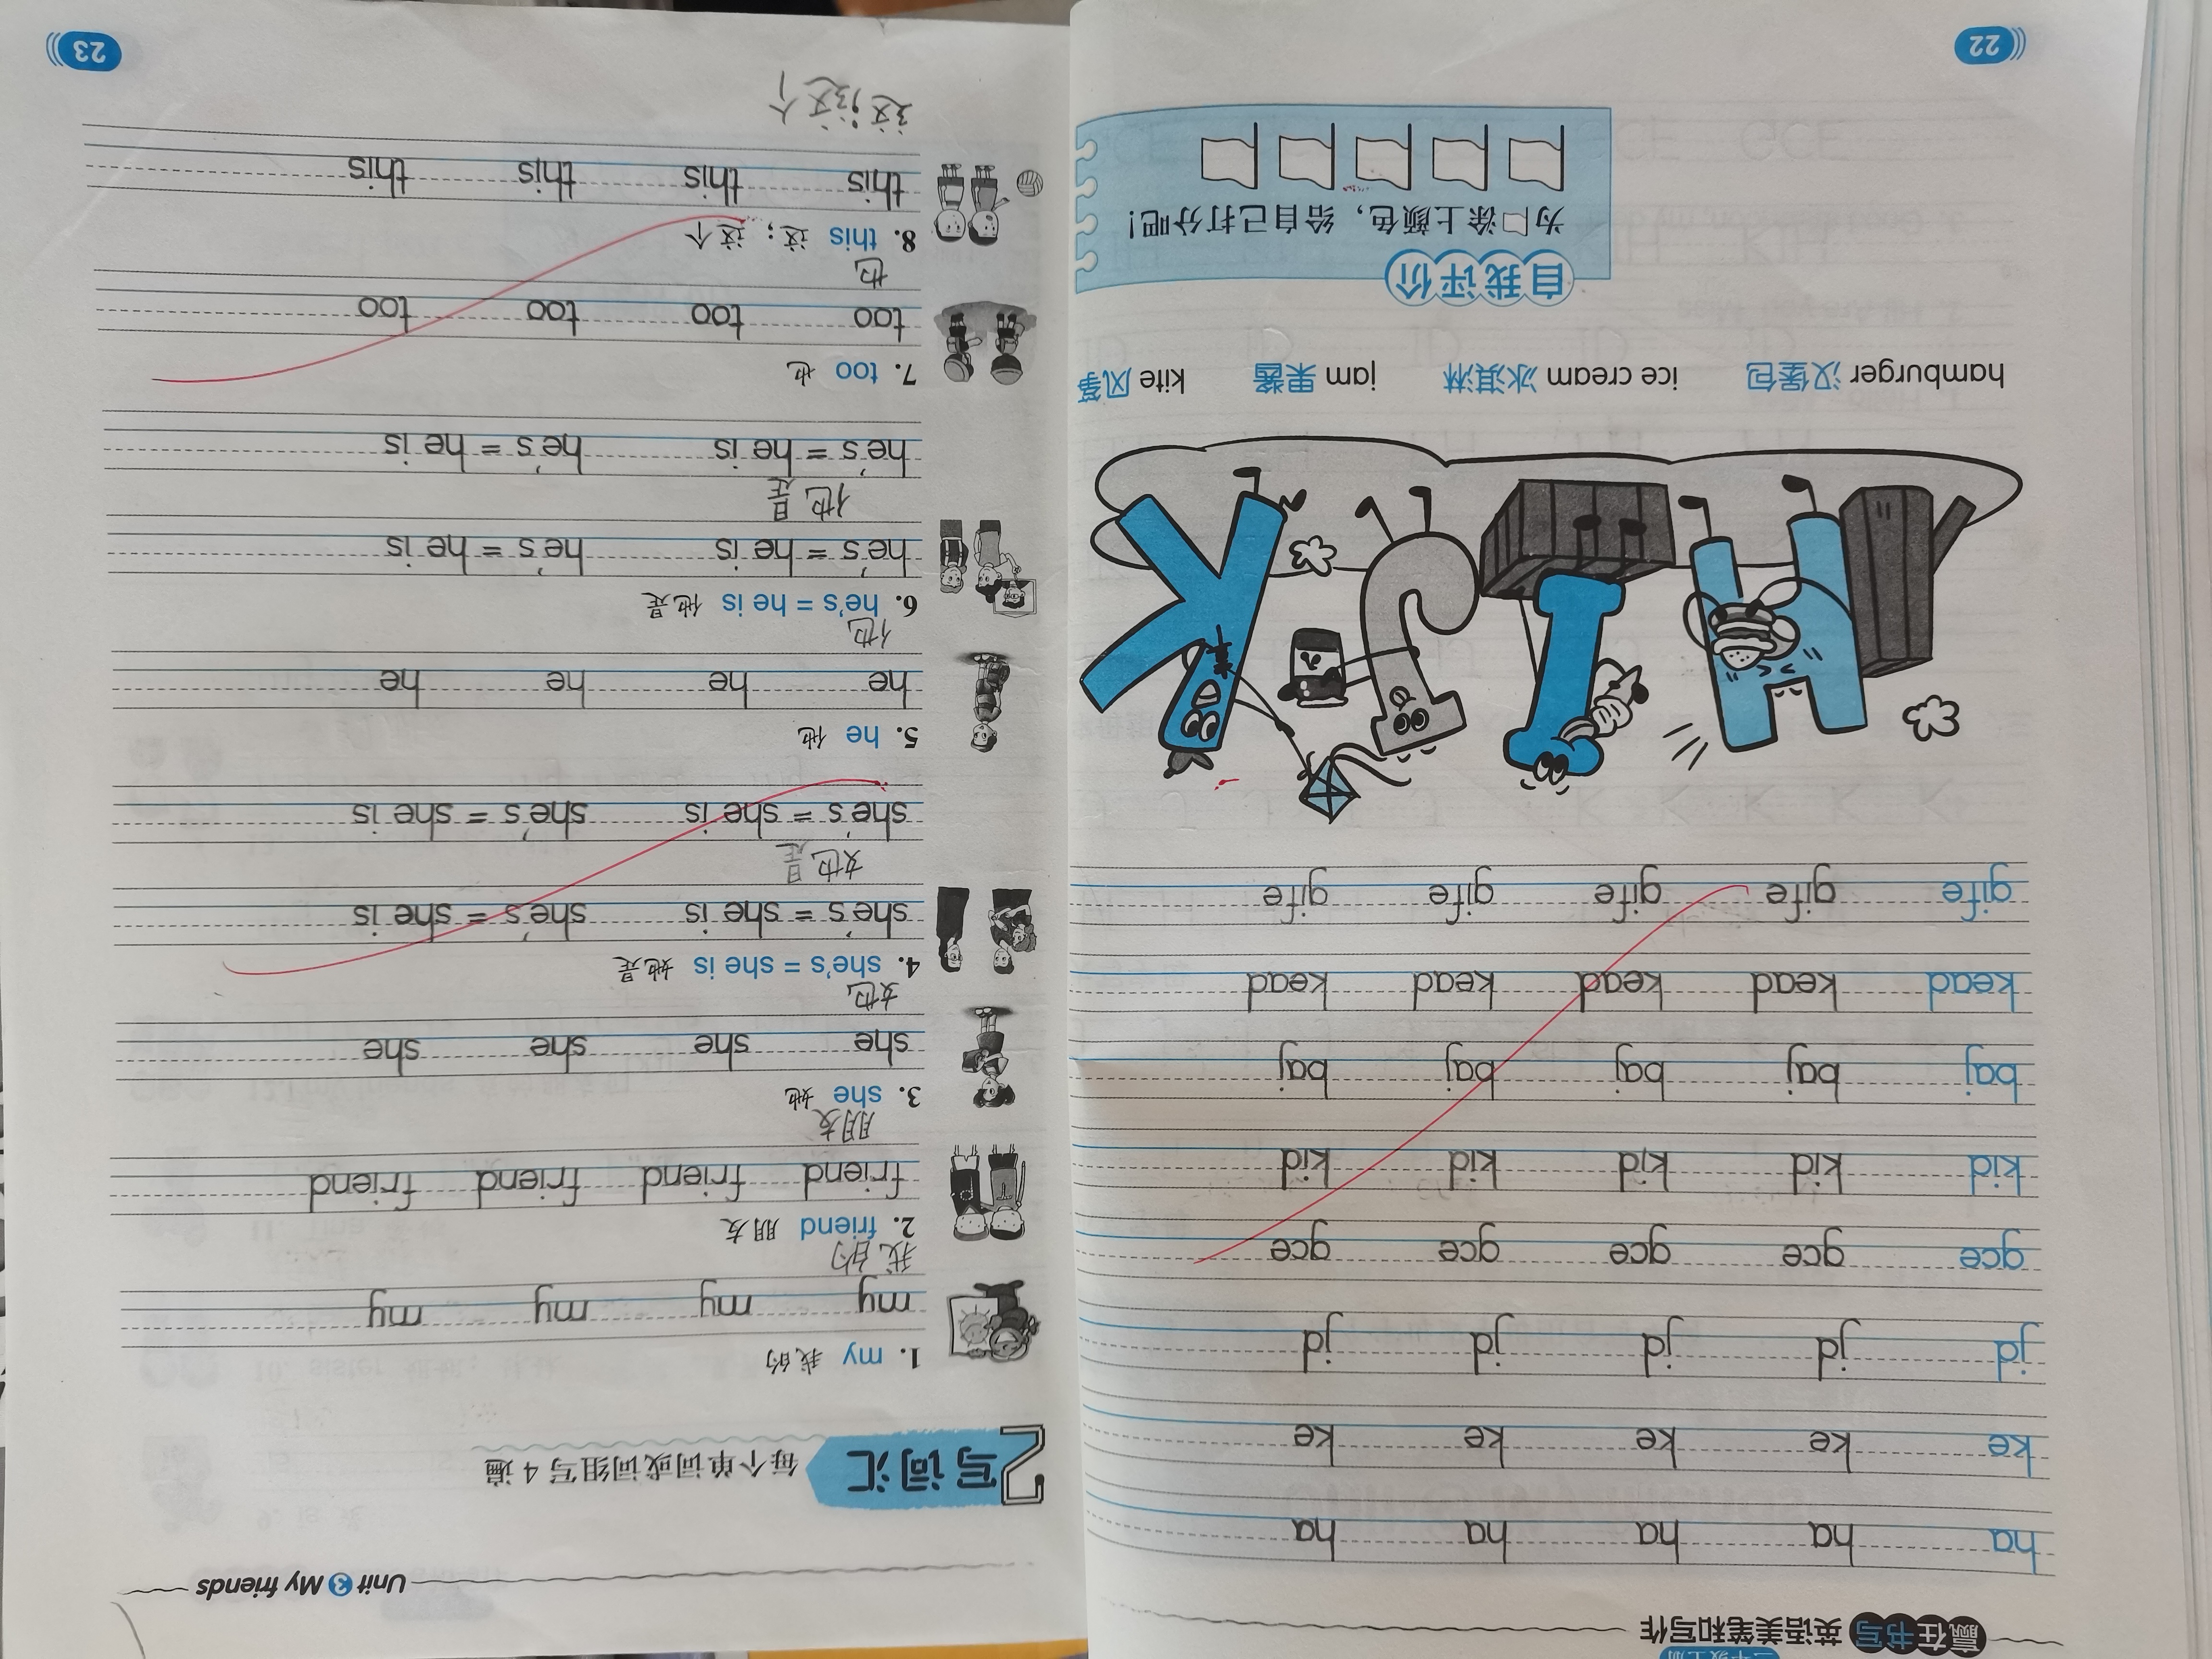 三年级上册
赢在书写 英语美笔和写作
ha ha ha ha ha
ke ke ke ke ke
jd jd jd jd jd
gce gce gce gce gce
kid kid kid kid kid
baj baj baj baj baj
kead kead kead kead kead
gife gife gife gife gife
hamburger 汉堡包 ice cream 冰淇淋 jam 果酱 kite 风筝
自我评价
为涂上颜色，给自己打分吧！
22
Unit 3 My friends
2 写词汇 每个单词或词组写 4 遍
1. my 我的
my my my my
我的
2. friend 朋友
friend friend friend friend
朋友
3. she 她
she she she she
她
4. she's = she is 她是
she's = she is she's = she is
她是
she's = she is she's = she is
5. he 他
he he he he
他
6. he's = he is 他是
he's = he is he's = he is
他是
he's = he is he's = he is
7. too 也
too too too too
也
8. this 这；这个
this this this this
这；这个
23